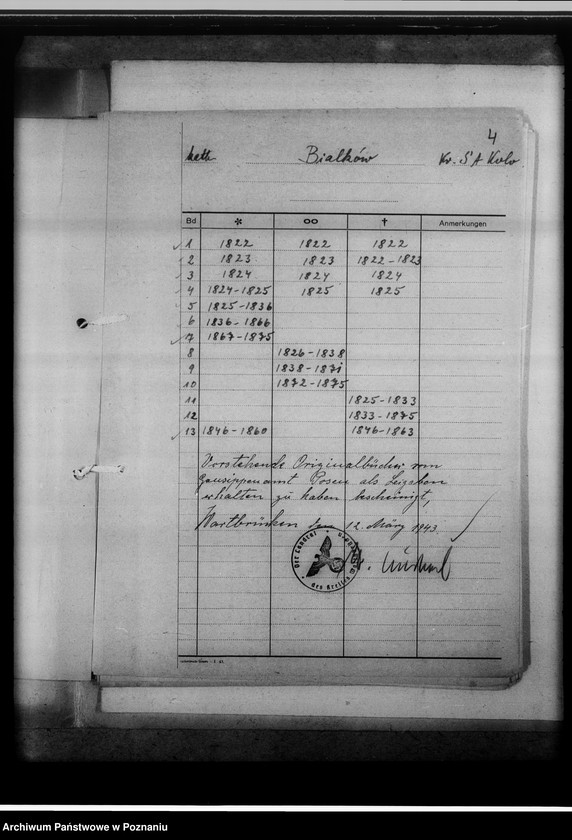 4
kath. Bialków Kr. S'A Kolo
Bd * ∞ † Anmerkungen
1 1822 1822 1822
2 1823 1823 1822-1823
3 1824 1824 1824
4 1824-1825 1825 1825
5 1825-1836
6 1836-1866
7 1867-1875
8 1826-1838
9 1838-1871
10 1872-1875
11 1825-1833
12 1833-1875
13 1846-1860 1846-1863
Vorstehende Originalbücher vom
Gausippenamt Posen als Leigaben
erhalten zu haben bescheinigt,
Wartbrücken den 12. März 1943.
Der Landrat
des Kreises
Archiwum Państwowe w Poznaniu